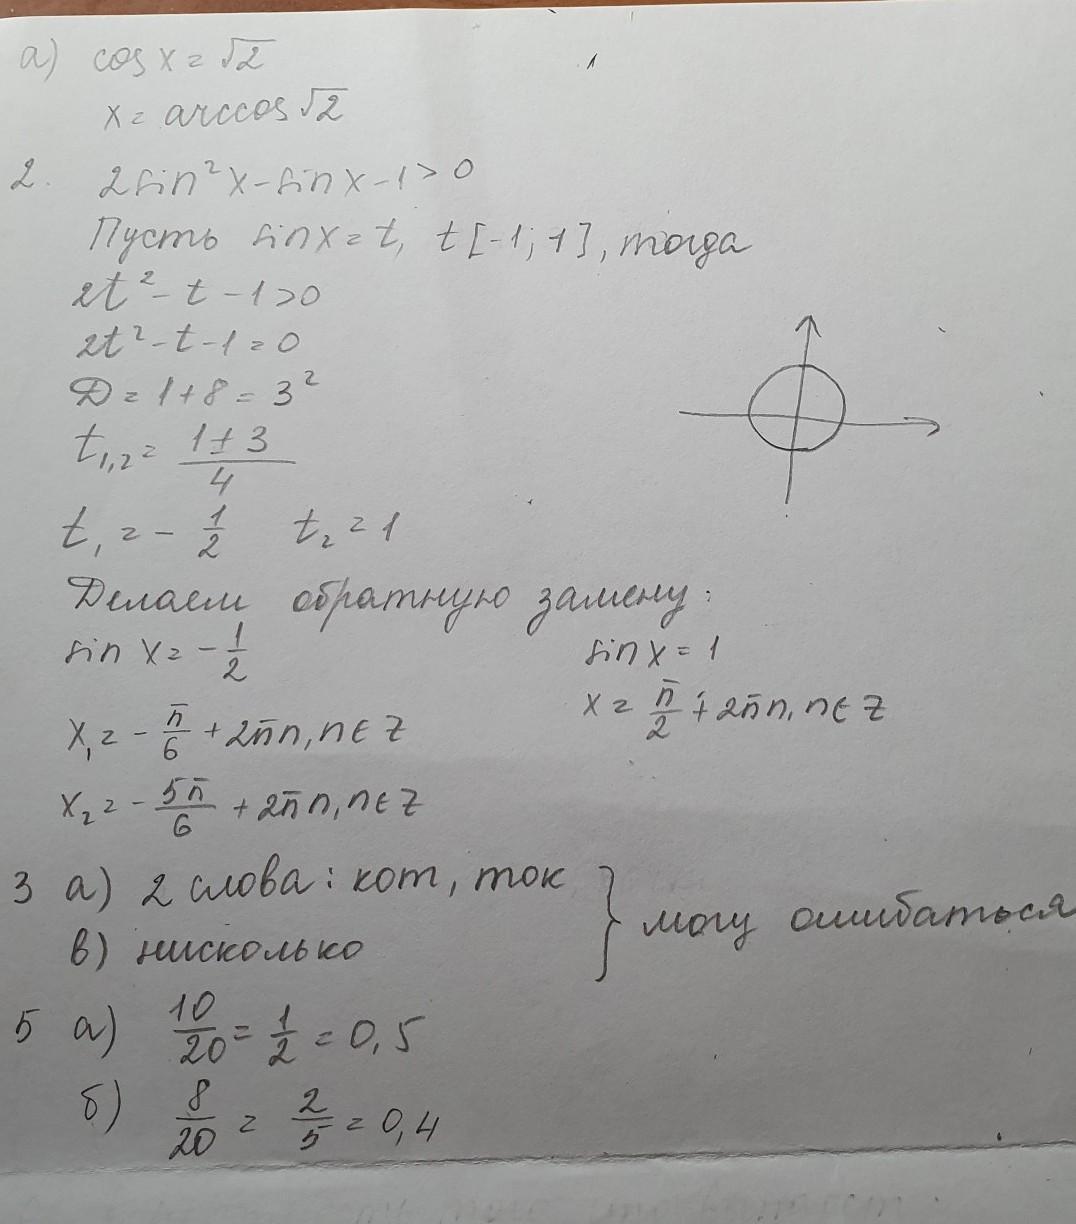 а) cos x = √2
x = arccos √2
2. 2sin²x - sin x - 1 > 0
Пусть sin x = t, t [-1; 1], тогда
2t² - t - 1 > 0
2t² - t - 1 = 0
D = 1 + 8 = 3²
t₁,₂ = (1 ± 3)/4
t₁ = - 1/2 t₂ = 1
Делаем обратную замену:
sin x = - 1/2 sin x = 1
x₁ = - π/6 + 2πn, n ∈ Z x = π/2 + 2πn, n ∈ Z
x₂ = - 5π/6 + 2πn, n ∈ Z
3 а) 2 слова: кот, ток } могу ошибаться
в) нисколько
5 а) 10/20 = 1/2 = 0,5
б) 8/20 = 2/5 = 0,4